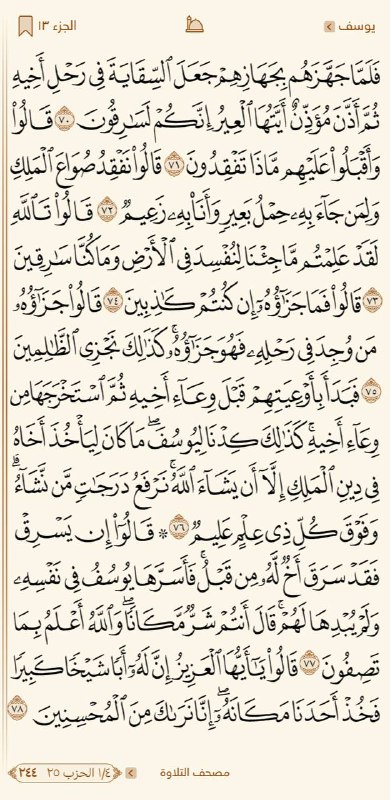 يوسف
الجزء ١٣
فَلَمَّا جَهَّزَهُم بِجَهَازِهِمْ جَعَلَ ٱلسِّقَايَةَ فِي رَحْلِ أَخِيهِ
ثُمَّ أَذَّنَ مُؤَذِّنٌ أَيَّتُهَا ٱلْعِيرُ إِنَّكُمْ لَسَٰرِقُونَ ٧٠ قَالُوا۟
وَأَقْبَلُوا۟ عَلَيْهِم مَّاذَا تَفْقِدُونَ ٧١ قَالُوا۟ نَفْقِدُ صُوَاعَ ٱلْمَلِكِ
وَلِمَن جَآءَ بِهِۦ حِمْلُ بَعِيرٍ وَأَنَا۠ بِهِۦ زَعِيمٌ ٧٢ قَالُوا۟ تَٱللَّهِ
لَقَدْ عَلِمْتُم مَّا جِئْنَا لِنُفْسِدَ فِي ٱلْأَرْضِ وَمَا كُنَّا سَٰرِقِينَ
٧٣ قَالُوا۟ فَمَا جَزَٰٓؤُهُۥٓ إِن كُنتُمْ كَٰذِبِينَ ٧٤ قَالُوا۟ جَزَٰٓؤُهُۥ
مَن وُجِدَ فِي رَحْلِهِۦ فَهُوَ جَزَٰٓؤُهُۥۚ كَذَٰلِكَ نَجْزِي ٱلظَّٰلِمِينَ
٧٥ فَبَدَأَ بِأَوْعِيَتِهِمْ قَبْلَ وِعَآءِ أَخِيهِ ثُمَّ ٱسْتَخْرَجَهَا مِن
وِعَآءِ أَخِيهِۚ كَذَٰلِكَ كِدْنَا لِيُوسُفَۖ مَا كَانَ لِيَأْخُذَ أَخَاهُ
فِي دِينِ ٱلْمَلِكِ إِلَّآ أَن يَشَآءَ ٱللَّهُۚ نَرْفَعُ دَرَجَٰتٍ مَّن نَّشَآءُۗ
وَفَوْقَ كُلِّ ذِي عِلْمٍ عَلِيمٌ ٧٦ ۞ قَالُوٓا۟ إِن يَسْرِقْ
فَقَدْ سَرَقَ أَخٌ لَّهُۥ مِن قَبْلُۚ فَأَسَرَّهَا يُوسُفُ فِي نَفْسِهِۦ
وَلَمْ يُبْدِهَا لَهُمْۚ قَالَ أَنتُمْ شَرٌّ مَّكَانًاۖ وَٱللَّهُ أَعْلَمُ بِمَا
تَصِفُونَ ٧٧ قَالُوا۟ يَٰٓأَيُّهَا ٱلْعَزِيزُ إِنَّ لَهُۥٓ أَبًا شَيْخًا كَبِيرًا
فَخُذْ أَحَدَنَا مَكَانَهُۥٓۖ إِنَّا نَرَىٰكَ مِنَ ٱلْمُحْسِنِينَ ٧٨
مصحف التلاوة
١/٤ الحزب ٢٥
٢٤٤